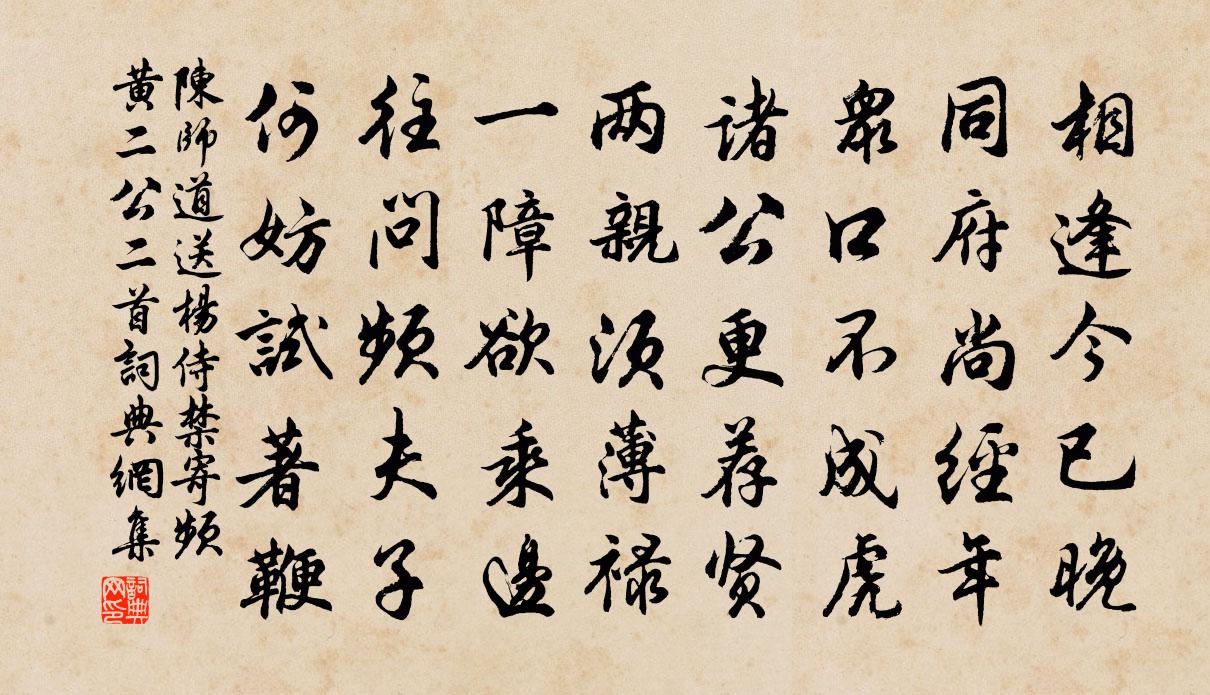 相逢今已晚
同府尚經年
衆口不成虎
诸公更荐贤
两親須薄禄
一障欲乘邊
往問頻夫子
何妨試著鞭
陳師道送楊侍禁寄頻
黃二公二首詞典網集
詞典网印